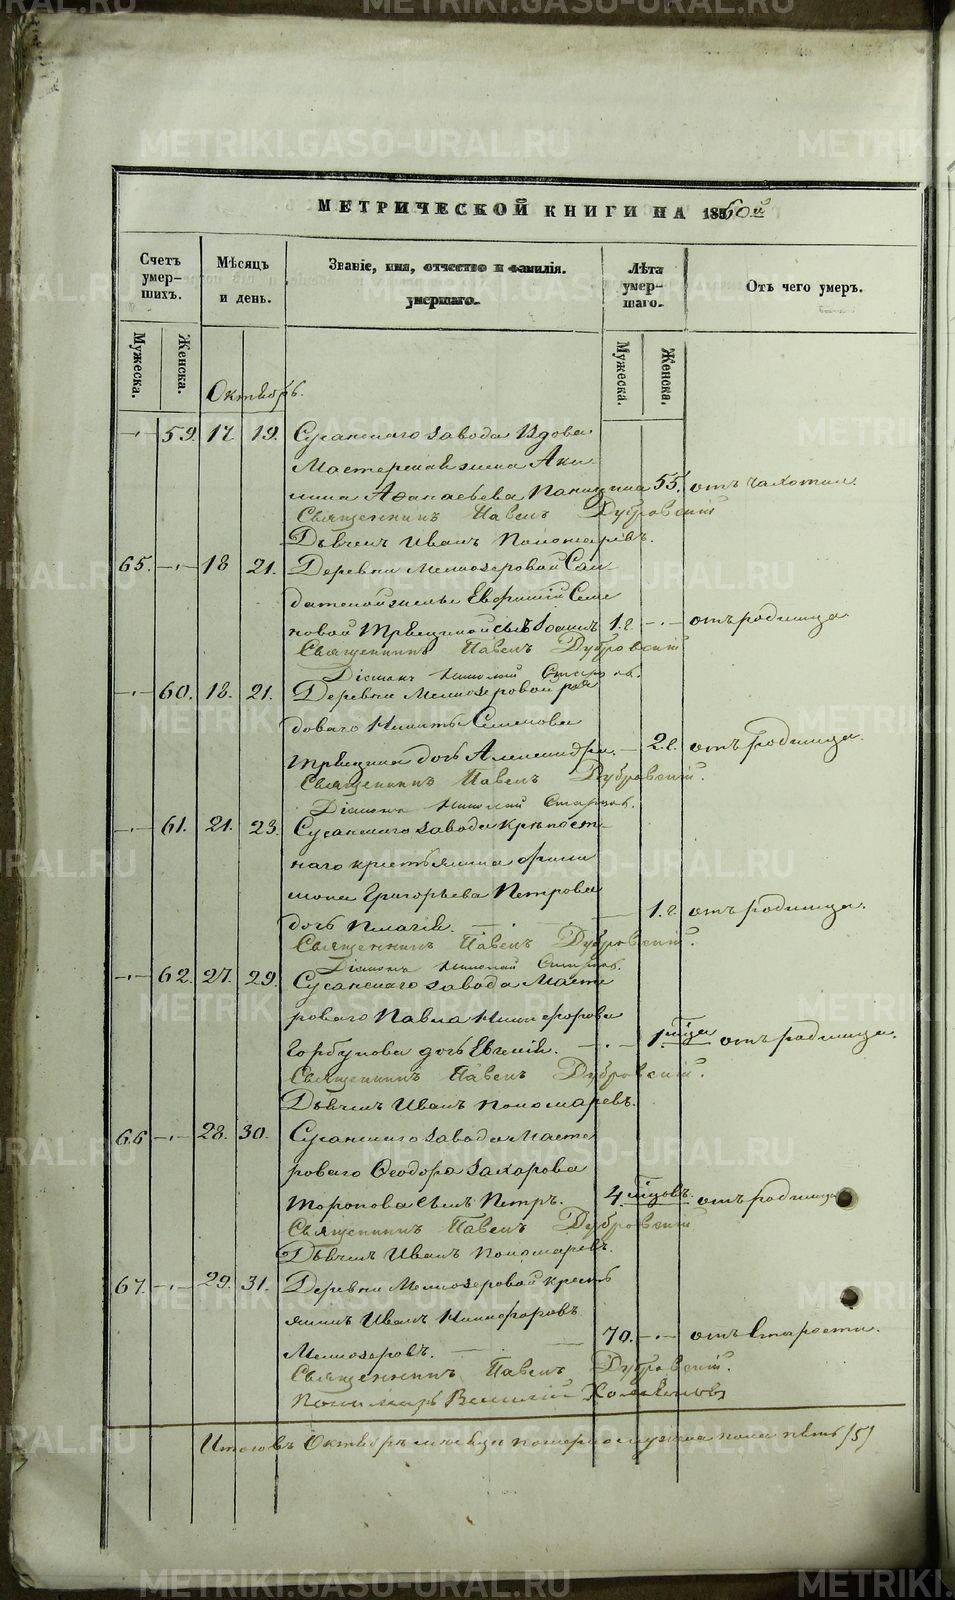 МЕТРИЧЕСКОЙ КНИГИ НА 1860й
Счетъ умерших.
Мѣсяцъ и день.
Званіе, имя, отчество и фамилія.
умершаго.
Лѣта умершаго.
Отъ чего умеръ.
Мужеска.
Женска.
Мужеска.
Женска.
Октябрь.
59. 17. 19. Сусанскаго завода Вдова
Мастерская жена Аки-
лина Аѳанасьева 55. отъ чахотки.
Священникъ Павелъ Дубровскій
Дьячекъ Иванъ Пономаревъ.
65. 18 21. Деревни Мелкозеровой Сол-
датской жены Семе-
новой сынъ Іоаннъ 1.г. отъ родимца
Священникъ Павелъ Дубровскій
Діаконъ Николай
60. 18. 21. Деревни Мелкозеровой ря-
доваго Никиты Семенова
дочь Александра. 2.г. отъ родимца.
Священникъ Павелъ Дубровскій.
Діаконъ Николай
61. 21. 23. Сусанскаго завода крѣпост-
наго крестьянина Фили-
мона Григорьева Петрова
дочь Пелагія. 1.г. отъ родимца.
Священникъ Павелъ Дубровскій.
Діаконъ Николай
62. 27. 29. Сусанскаго завода Масте-
роваго Павла Никифорова
Горбунова дочь Евгенія. 1. мѣсяца отъ родимца.
Священникъ Павелъ Дубровскій.
Дьячекъ Иванъ Пономаревъ.
66 28. 30. Сусанскаго завода Масте-
роваго Ѳеодора Захарова
Торопова сынъ Петръ. 4. мѣсяцовъ. отъ родимца
Священникъ Павелъ Дубровскій
Дьячекъ Иванъ Пономаревъ.
67. 29. 31. Деревни Мелкозеровой кресть-
янинъ Иванъ Никифоровъ
Мелкозеровъ. 70. отъ старости.
Священникъ Павелъ Дубровскій.
Пономарь Василій
Итого въ Октябрѣ мѣсяцѣ померло мужеска пола пять (5)
METRIKI.GASO-URAL.RU